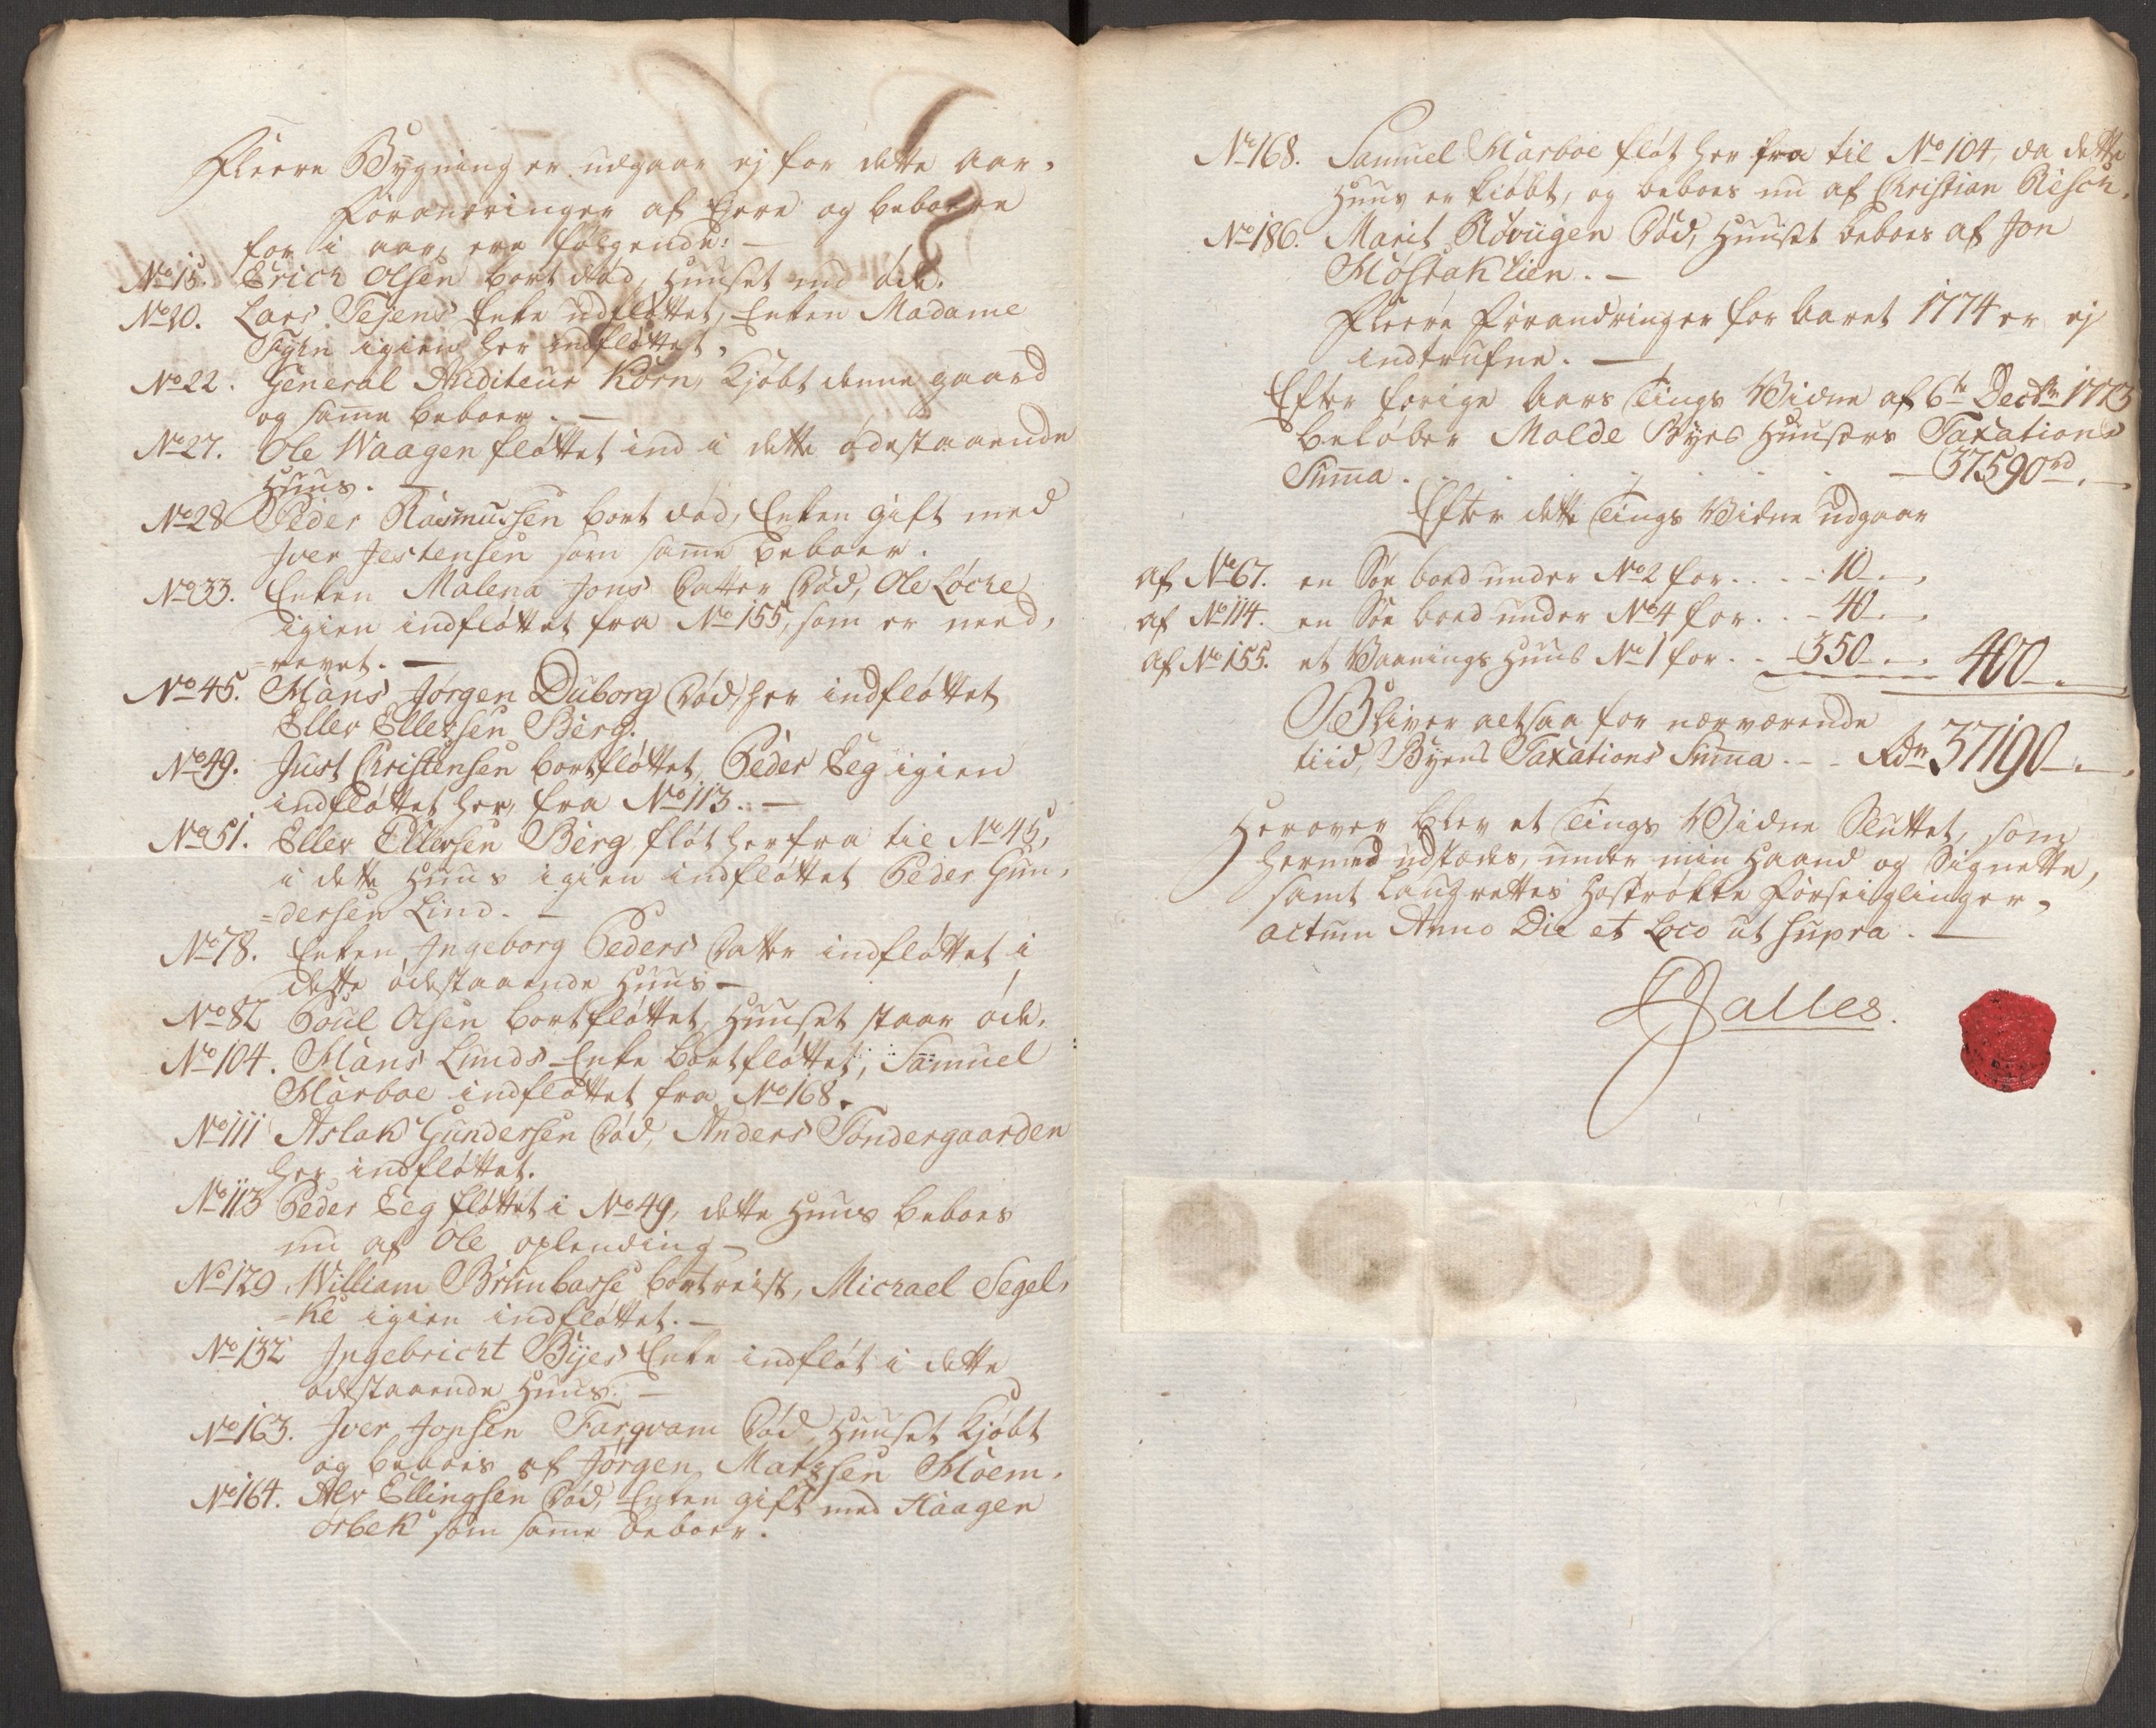 Fleere Bygninger udgaar ej for dette Aar,
Forandringer af Eere og beboere
for i aar, ere følgende: —
No 15. Erich Olsen bort død, Huuset end øde.
No 20. Lars Tejens Enke udfløttet, Enken Madame
igien her indfløttet,
No 22. General Auditeur Korn, Kjøbt denne gaard
og samme beboer. —
No 27. Ole Waagen fløttet ind i dette ødestaaende
Huus. —
No 28 Peder Rasmussen bort død, Enken gift med
Iver Jestensen som samme beboer.
No 33. Enken Malena Jons Datter død, Ole Løche
igien indfløttet fra No 155, som er need,
=revet. —
No 45. Mans Jørgen Duborg død, her indfløttet
Eller Ellersen Berg.
No 49. Just Christensen bortfløttet, Peder Eeg igien
indfløttet her, fra No 113. —
No 51. Eller Ellersen Berg fløt herfra til No 45,
i dette Huus igien indfløttet Peder Gun,
=dersen Lind. —
No 78. Enken Ingeborg Peders Datter indfløttet i
dette ødestaaende Huus —
No 82 Poul Olsen bortfløttet, Huuset staar øde.
No 104. Mans Lunds Enke bortfløttet, Samuel
Marboe indfløttet fra No 168.
No 111 Aslak Gundersen død, Anders Tøndergaarden
her indfløttet.
No 113 Peder Eeg fløttet i No 49, dette Huus beboes
nu af Ole oplending —
No 129 William Brunbasse bortreist, Michael Segel,
=ke igien indfløttet. —
No 132 Ingebricht Byes Enke indfløt i dette
ødestaaende Huus. —
No 163. Iver Jonsen Farqvam død, Huuset Kjøbt
og beboes af Jørgen Matssen Moem.
No 164. Alv Ellingsen død, Enken gift med Haagen
Orbek som samme beboer.
No 168. Samuel Marboe fløt her fra til No 104, da dette
Huus er kiøbt, og beboes nu af Christian Risch.
No 186. Marit Røviigen død, Huuset beboes af Jon
Mostaklien. —
Fleere forandringer for Aaret 1774 er ej
indtrufne. —
Efter forige Aars Tings Vidne af 6te Decbr 1773
beløber Molde Byes Huusers Taxations
Summa . . . . . — 37590 rd. —
Efter dette Tings Vidne udgaar
af No 67. en Søe boed under No 2 for . . — 10 —
af No 114. en Søe boed under No 4 for . . — 40 —
af No 155. et Vaanings Huus No 1 for . . — 350 — 400 —.
Bliver altsaa for nærværende
tiid, Byens Taxations Summa . — Rdr 37190 —.
Herover blev et Tings Vidne Sluttet, som
hermed udstædes, under min Haand og Signette,
samt Laugrettes hostrøkte Forseiglinger,
actum Anno Die et Loco ut supra. —
Jalles.